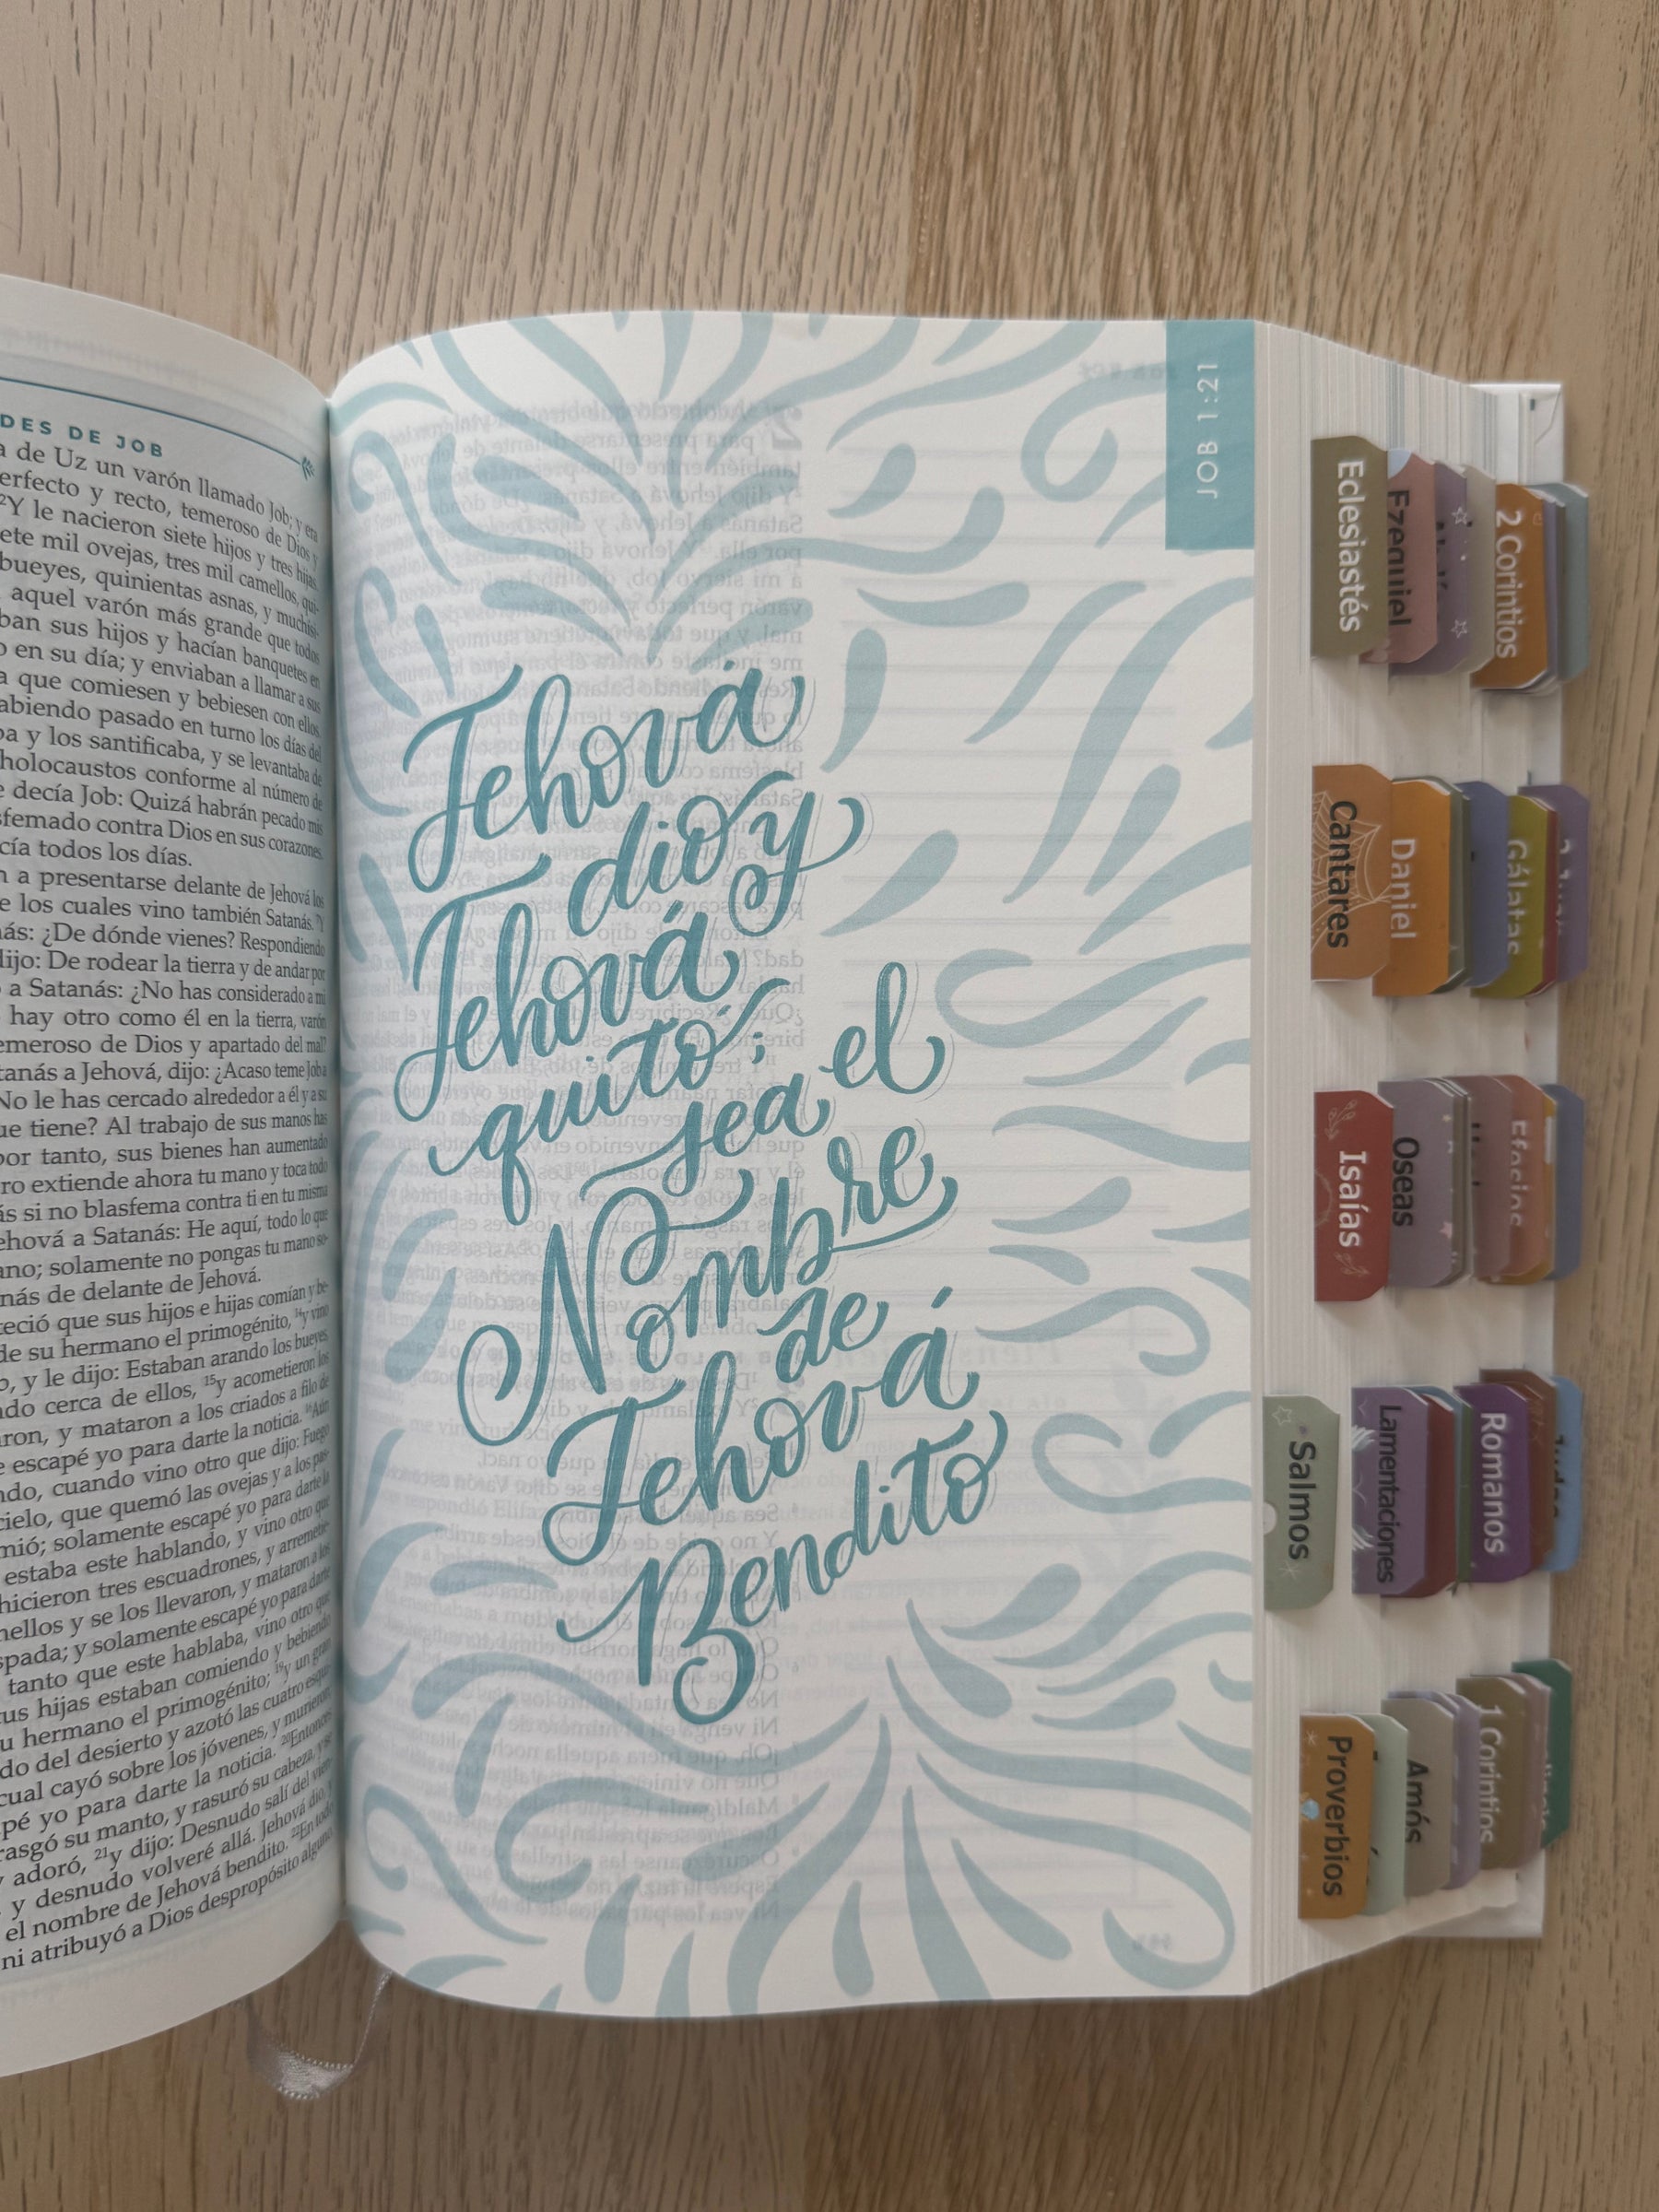 DES DE JOB
a de Uz un varón llamado Job; y era
erfecto y recto, temeroso de Dios y
²Y le nacieron siete hijos y tres hijas.
ete mil ovejas, tres mil camellos, qui-
bueyes, quinientas asnas, y muchísi-
aquel varón más grande que todos
ban sus hijos y hacían banquetes en
o en su día; y enviaban a llamar a sus
a que comiesen y bebiesen con ellos.
abiendo pasado en turno los días del
ba y los santificaba, y se levantaba de
holocaustos conforme al número de
e decía Job: Quizá habrán pecado mis
sfemado contra Dios en sus corazones.
cía todos los días.
n a presentarse delante de Jehová los
e los cuales vino también Satanás. ⁷Y
nás: ¿De dónde vienes? Respondiendo
dijo: De rodear la tierra y de andar por
a Satanás: ¿No has considerado a mi
hay otro como él en la tierra, varón
emeroso de Dios y apartado del mal?
tanás a Jehová, dijo: ¿Acaso teme Job a
No le has cercado alrededor a él y a su
ue tiene? Al trabajo de sus manos has
por tanto, sus bienes han aumentado
ro extiende ahora tu mano y toca todo
ás si no blasfema contra ti en tu misma
ehová a Satanás: He aquí, todo lo que
ano; solamente no pongas tu mano so-
nás de delante de Jehová.
teció que sus hijos e hijas comían y be-
de su hermano el primogénito, ¹⁴y vino
o, y le dijo: Estaban arando los bueyes,
ndo cerca de ellos, ¹⁵y acometieron los
aron, y mataron a los criados a filo de
e escapé yo para darte la noticia. ¹⁶Aún
ndo, cuando vino otro que dijo: Fuego
cielo, que quemó las ovejas y a los pas-
mió; solamente escapé yo para darte la
estaba este hablando, y vino otro que
hicieron tres escuadrones, y arremetie-
mellos y se los llevaron, y mataron a los
spada; y solamente escapé yo para darte
tanto que este hablaba, vino otro que
tus hijas estaban comiendo y bebiendo
u hermano el primogénito; ¹⁹y un gran
do del desierto y azotó las cuatro esqui-
cual cayó sobre los jóvenes, y murieron;
pé yo para darte la noticia. ²⁰Entonces
rasgó su manto, y rasuró su cabeza, y se
adoró, ²¹y dijo: Desnudo salí del vien-
y desnudo volveré allá. Jehová dio, y
el nombre de Jehová bendito. ²²En todo
ni atribuyó a Dios despropósito alguno.
JOB 1:21
Jehová
dio y
Jehová
quitó;
sea el
Nombre
de
Jehová
Bendito
Eclesiastés
Ezequiel
2 Corintios
Cantares
Daniel
Gálatas
Isaías
Oseas
Efesios
Salmos
Lamentaciones
Romanos
Judas
Proverbios
Amós
1 Corintios